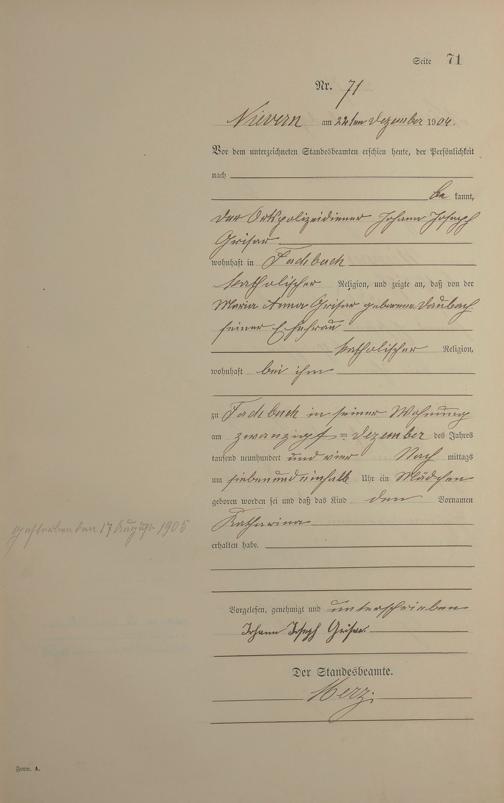 Seite 71
Nr. 71
Nievern am 22ten Dezember 1904.
Vor dem unterzeichneten Standesbeamten erschien heute, der Persönlichkeit
nach
be kannt,
der Ortspolizeidiener Johann Joseph
Griser
wohnhaft in Fachbach
katholischer Religion, und zeigte an, daß von der
Maria Anna Griser geborene Daubach
seiner Ehefrau
katholischer Religion,
wohnhaft bei ihm
zu Fachbach in seiner Wohnung
am zwanzigst= Dezember des Jahres
tausend neunhundert und vier Nach mittags
um siebenundeinhalb Uhr ein Mädchen
geboren worden sei und daß das Kind den Vornamen
Katharina
erhalten habe.
gestorben den 17 August 1905
Vorgelesen, genehmigt und unterschrieben
Johann Joseph Griser
Der Standesbeamte.
Merz
Form. A.